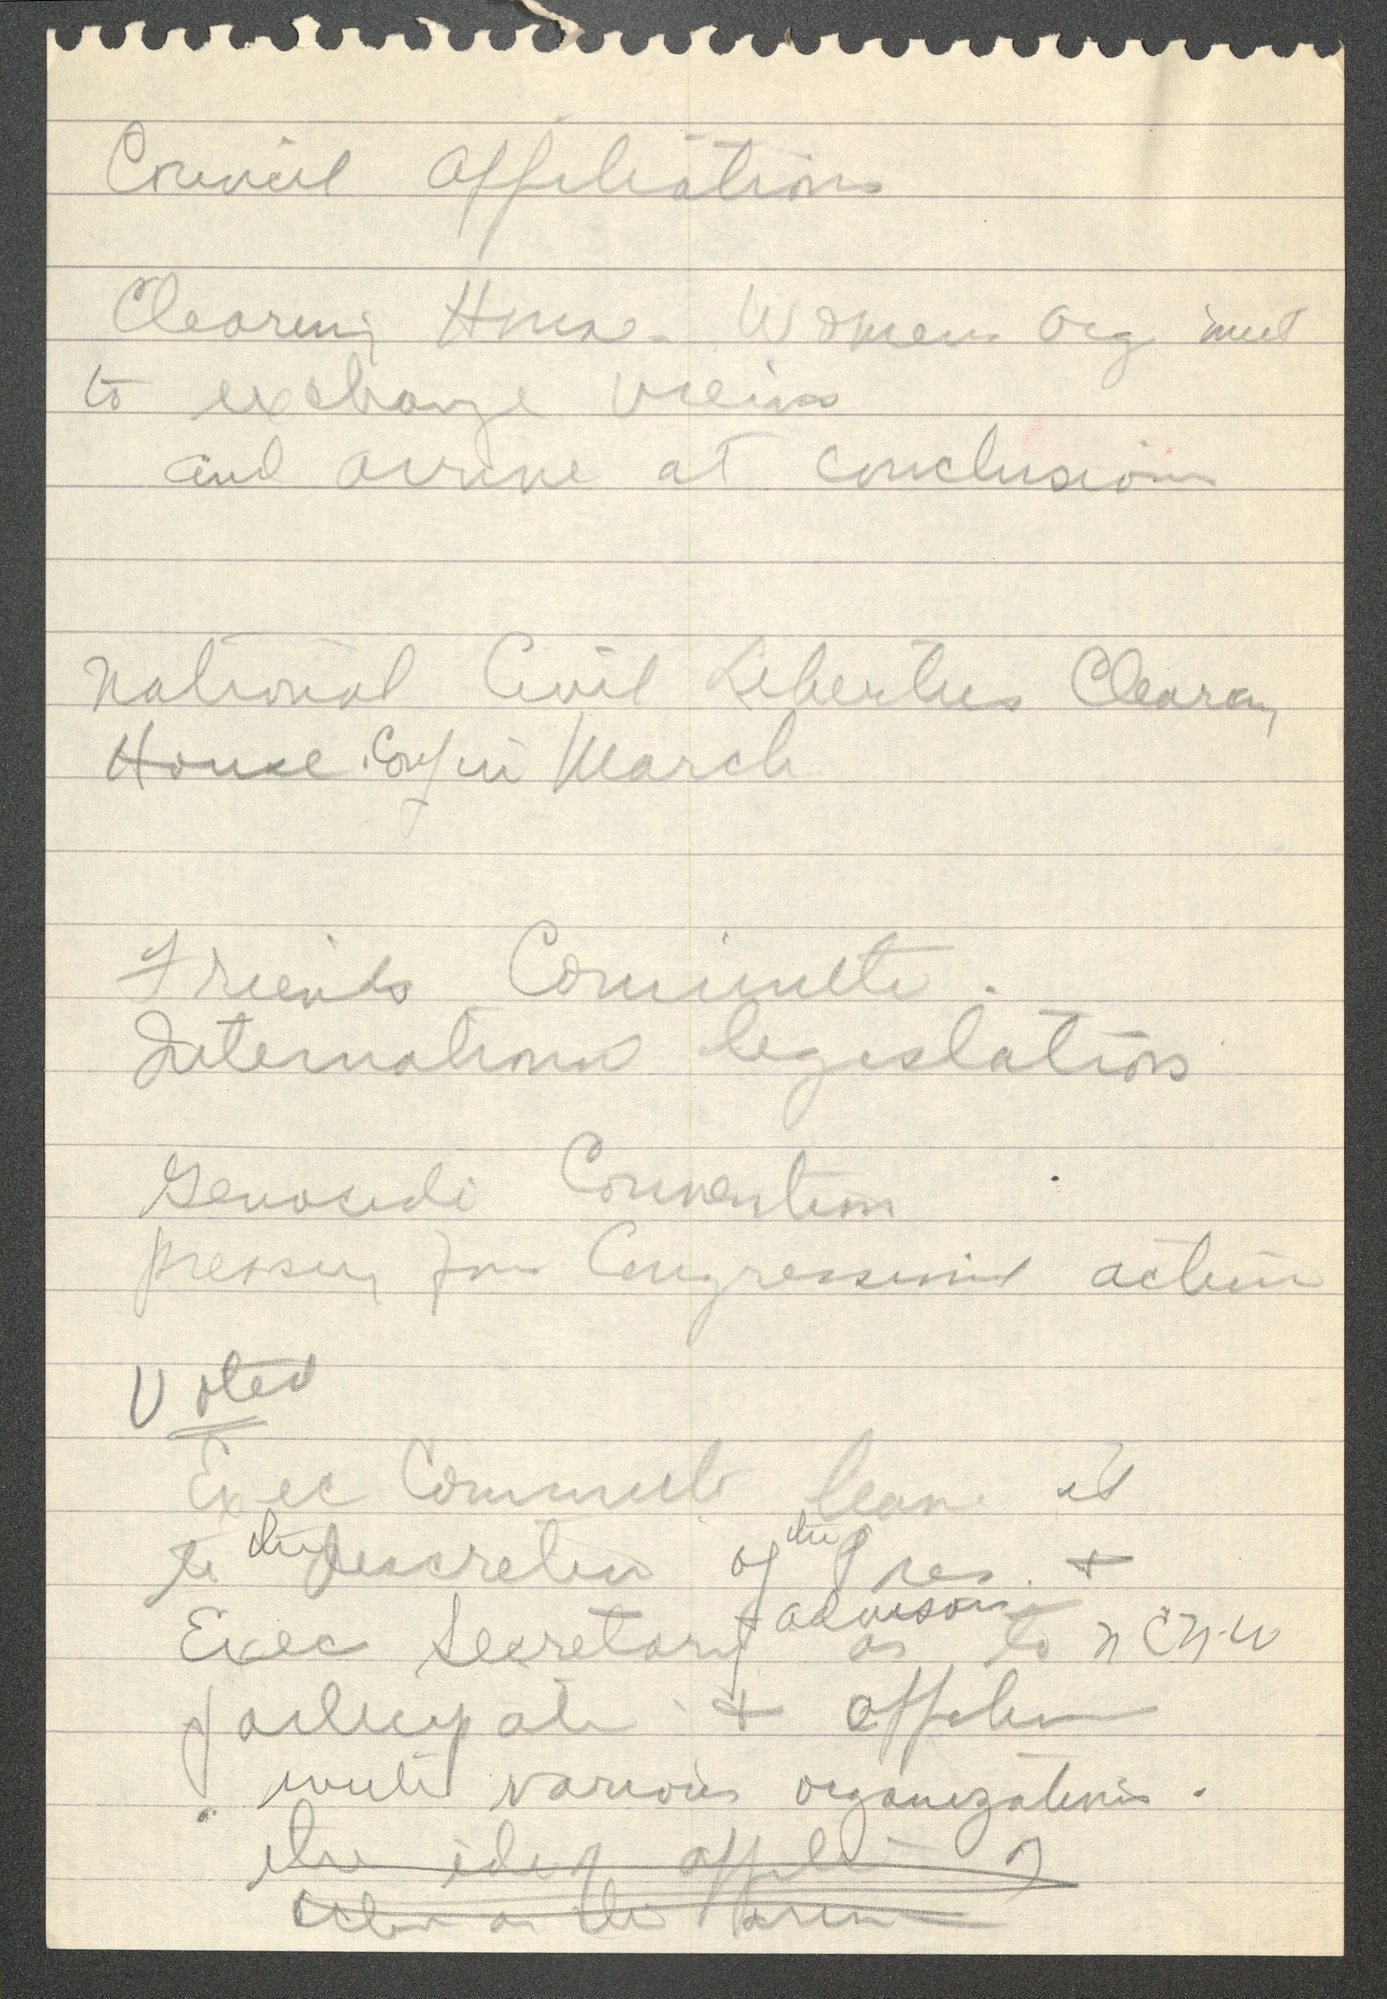 Council Affiliations
Clearing House - Womens Org meet
to exchange views
and arrive at conclusions
National Civil Liberties Clearing
House. Conf in March
Friends Committee.
International legislation
Genocide Convention
pressing for Congressional action
Voted
Exec Committee leave it
to the discretion of the Pres. +
Exec Secretary advisory as to NCNW
participate + affiliation
with various organizations.
the idea of affili of
on the